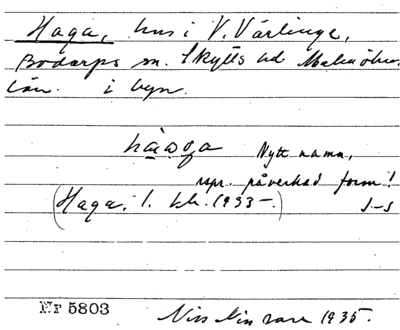 Haga, hus i V. Värlinge,
Bodarps sn. Skytts hd Malmöhus
län. i byn.
hạ̀ɑga Nytt namn,
rspr. påverkad form!
(Haga. J. kh. 1933-.) J-S
Nr 5803
Nils Nilsson 1935.